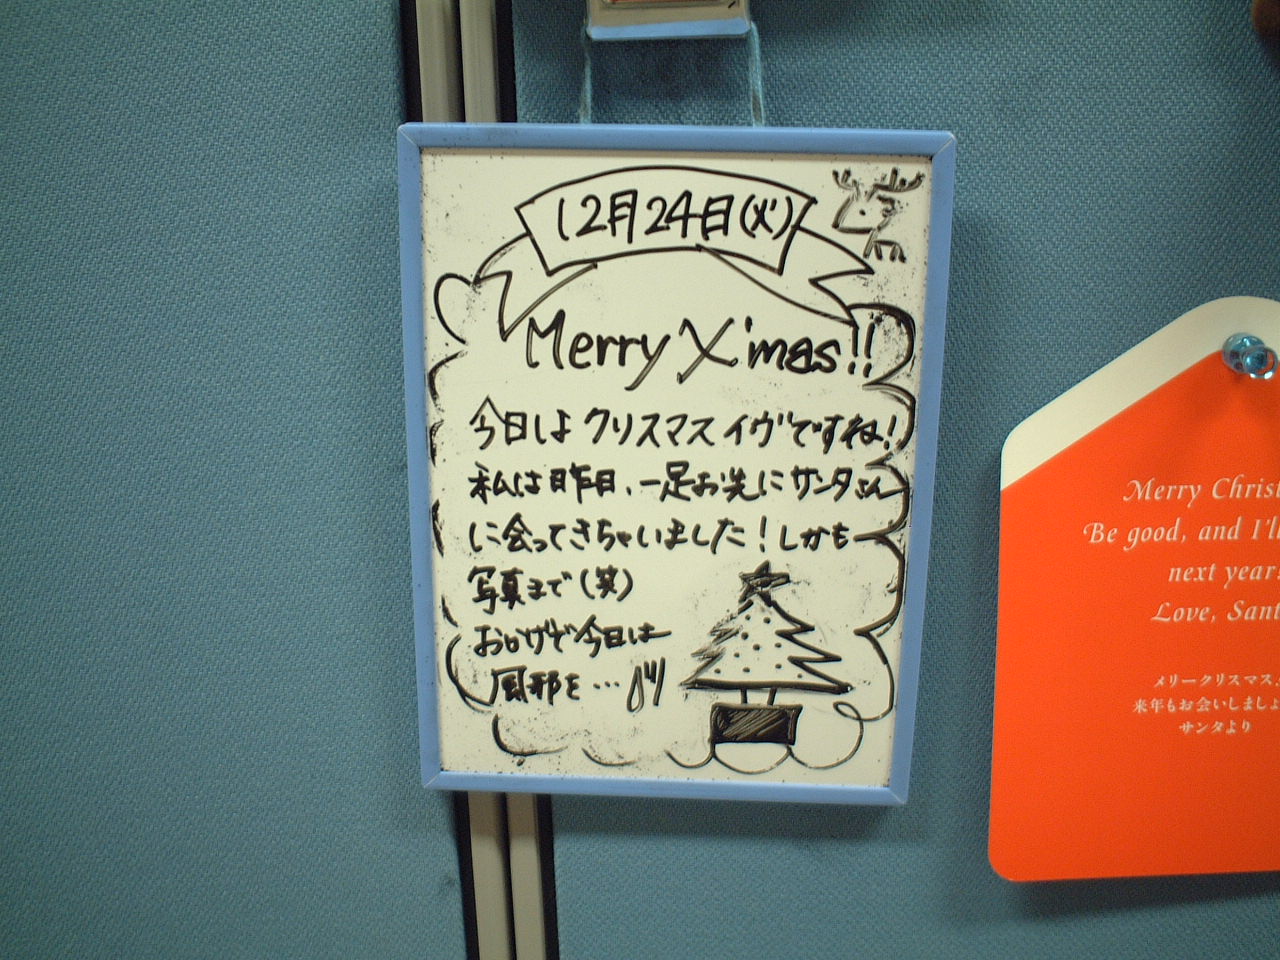 12月24日(火)
Merry X'mas!!
今日はクリスマスイヴですね!
私は昨日、一足お先にサンタさん
に会ってきちゃいました!しかも
写真まで(笑)
おかげで今日は
風邪を…
Merry Christ
Be good, and I'll
next year
Love, Sant
メリークリスマス
来年もお会いしましょ
サンタより